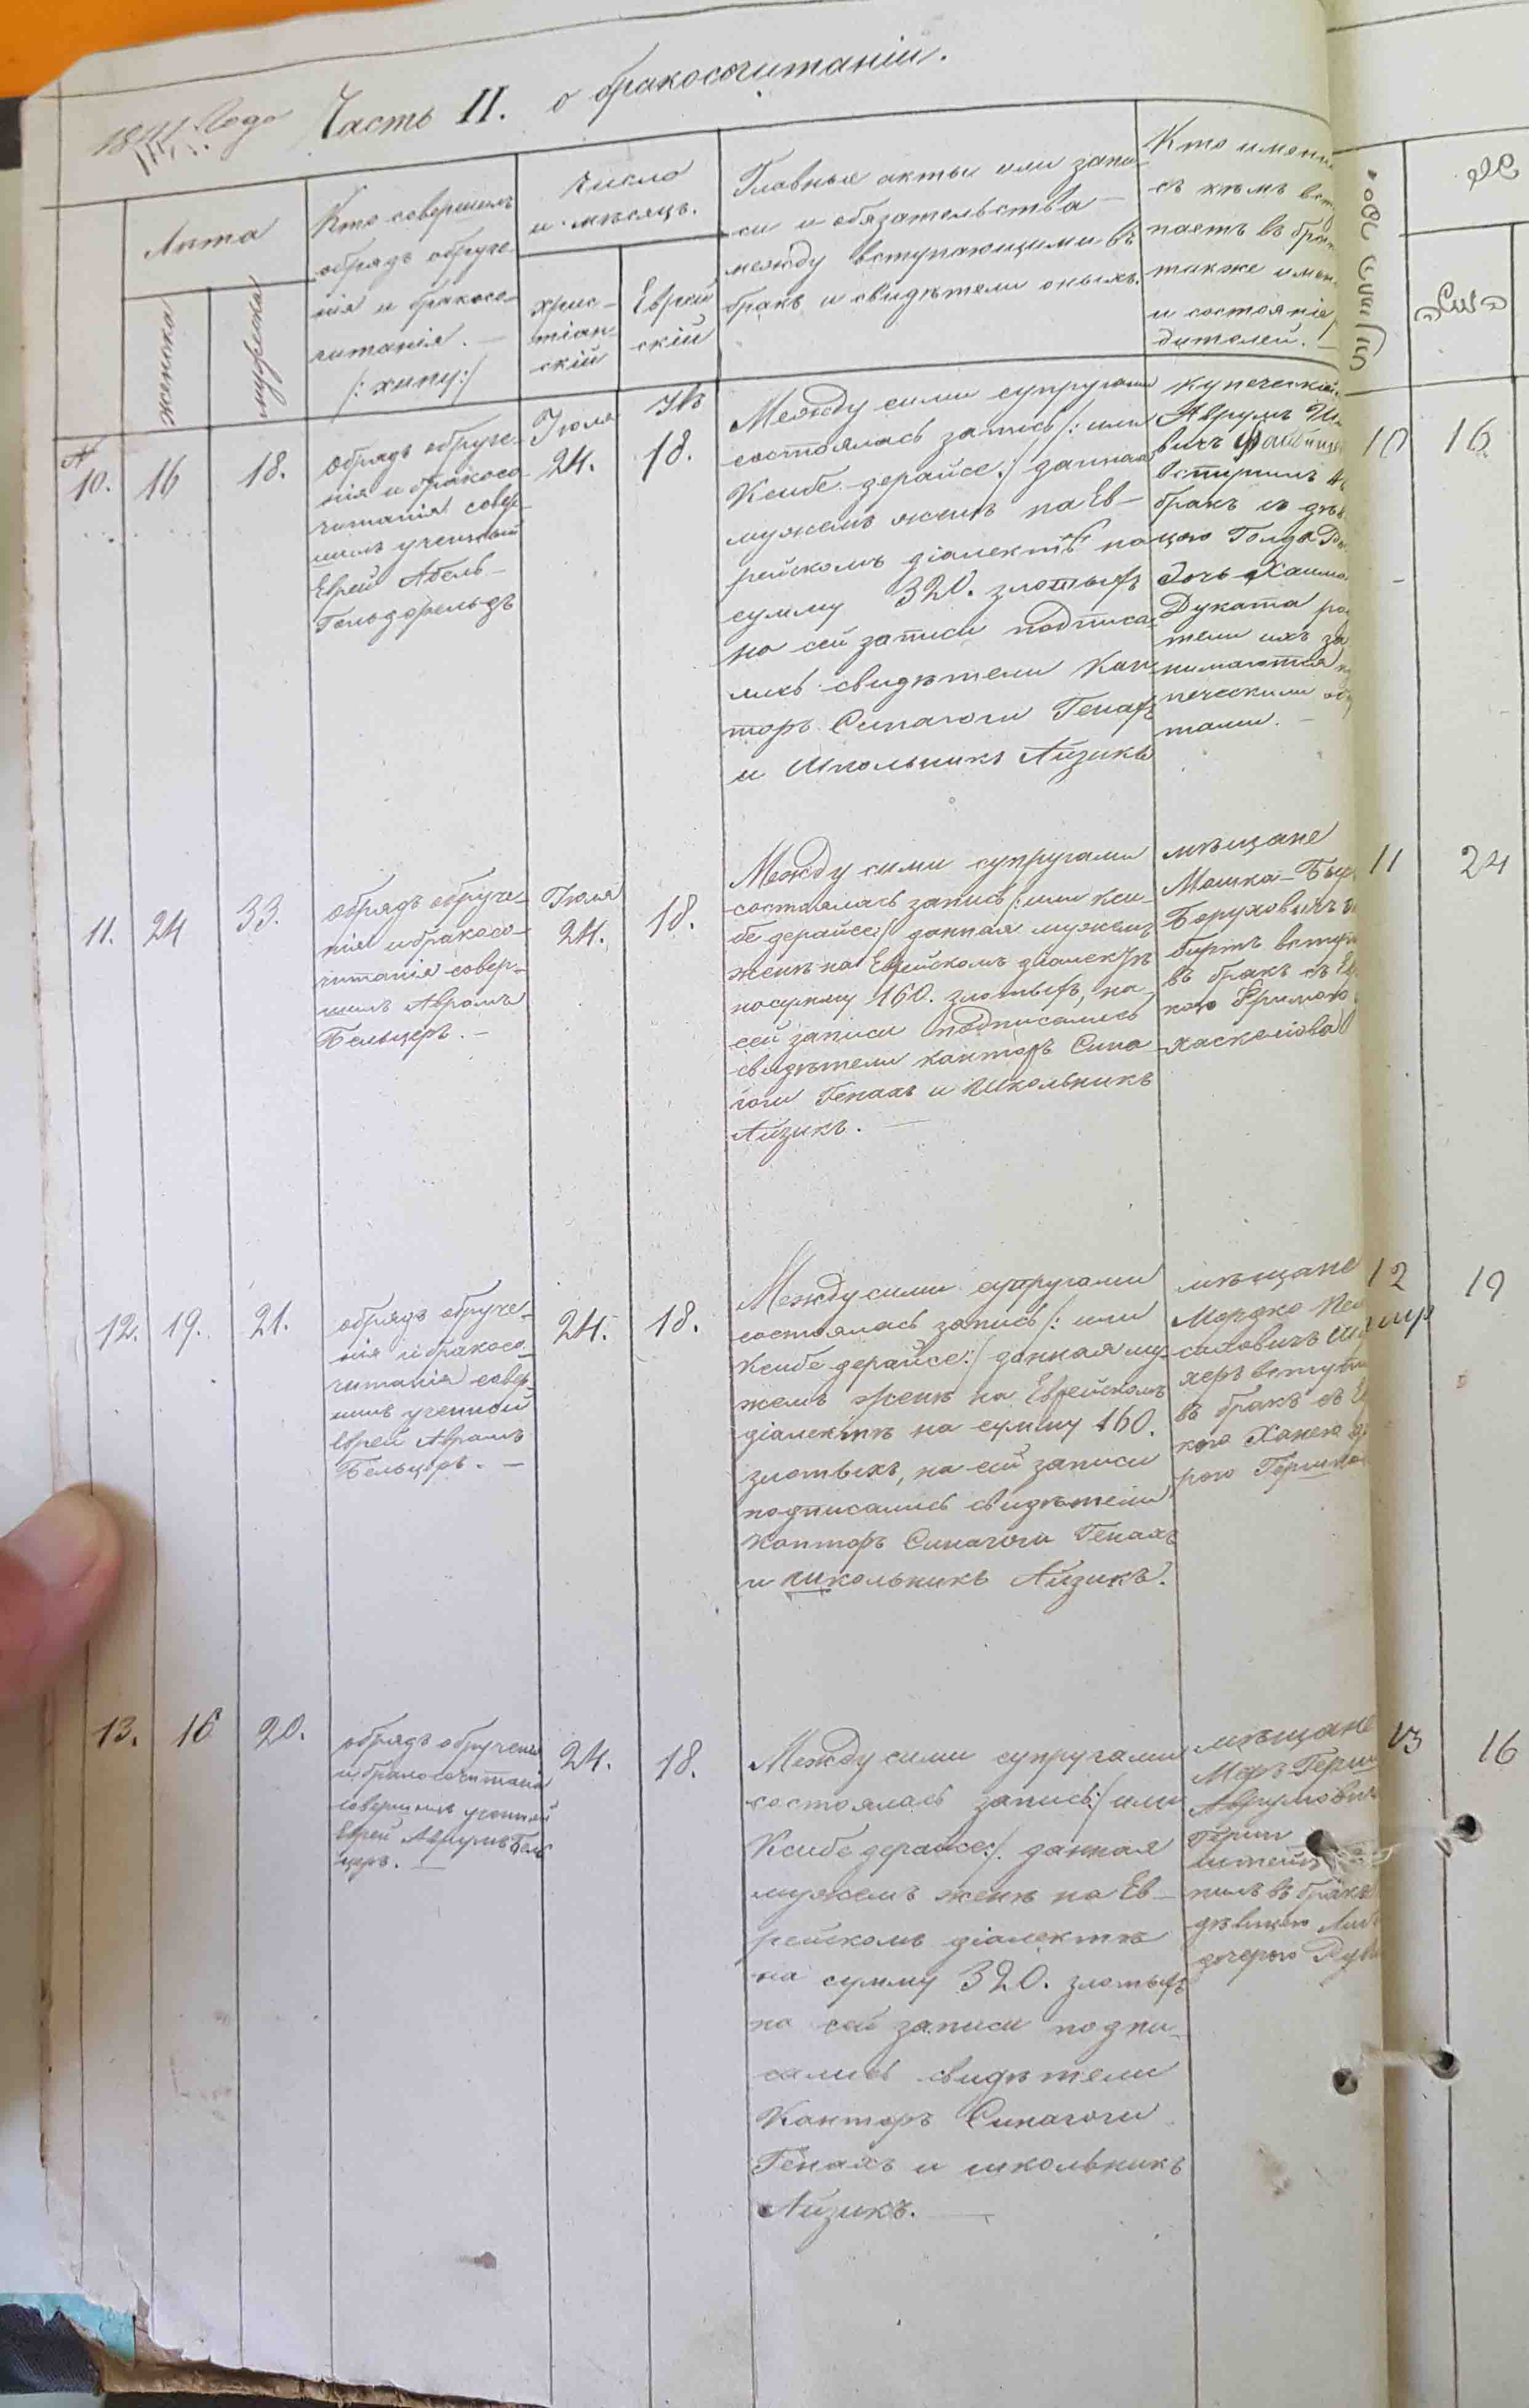 Года Часть II. о бракосочитаніи.
Лѣта
женска
мужеска
Кто совершилъ
обрядъ обруче-
нія и бракосо-
читанія. —
/: хипу :/
Число
и мѣсяцъ.
Хрис-
тіан-
скій
Еврей
скій
Главные акты или запи-
си и обязательства
между вступающими въ
бракъ и свидѣтели оныхъ.
Кто имен
съ кѣмъ вст
паетъ въ бра
также имен
и состояніе
дителей. —
№
10.
16
18.
Обрядъ обруче-
нія и бракосо
читанія совер-
шилъ ученный
Еврей Абель
Гольдфельдъ
Іюля
24.
18.
Между сими супругами
состоялась запись /: или
Ксибе дерайсе :/ данная
мужемъ женѣ на Ев-
рейскомъ діалектѣ на
сумму 320. злотыхъ
на сей записи подписа-
лись свидѣтели Кан-
торъ Синагоги Генахъ
и Школьникъ Айзикъ
купеческій
Аврумъ
вичъ
вступилъ
бракъ съ дѣв
цею Голда
дочь Хаима
Дуката ро
тели ихъ за
нимаются
печескими об
тами. —
10
16
11.
24
33.
обрядъ обруче-
нія и бракосо-
читанія совер-
шилъ Аврамъ
Бельцеръ. —
Іюля
24.
18.
Между сими супругами
состоялась запись /: или кси-
бе дерайсе :/ данная мужемъ
женѣ на Еврейскомъ діалектѣ
на сумму 160. злотыхъ, на
сей записи подписались
свидѣтели канторъ Сина
гоги Генахъ и Школьникъ
Айзикъ. —
мѣщане
Мошка
Боруховичъ
вступ
въ бракъ съ Ев
кою Фримою
Хаскелова
11
24
12.
19.
21.
обрядъ обруче-
нія и бракосо-
читанія совер-
шилъ ученной
Еврей Аврамъ
Бельцеръ. —
24.
18.
Между сими супругами
состоялась запись /: или
Ксибе дерайсе :/ данная му-
жемъ женѣ на Еврейскомъ
діалектѣ на сумму 160.
злотыхъ, на сей записи
подписались свидѣтели
Канторъ Синагоги Генахъ
и школьникъ Айзикъ.
мѣщане
Мордко Пей
саховичъ
херъ вступи
въ бракъ съ Е
кою Ханею до
рою Гершко
12
19
13.
16
20.
обрядъ обрученія
и бракосочитанія
совершилъ ученной
Еврей Аврумъ Бель
церъ. —
24.
18.
Между сими супругами
состоялась запись :/ или
Ксибе дерайсе :/. данная
мужемъ женѣ на Ев-
рейскомъ діалектѣ
на сумму 320. злотыхъ
на сей записи подпи-
сались свидѣтели
Канторъ Синагоги
Генахъ и школьникъ
Айзикъ. —
мѣщане
Меръ Герш
Аврумови
Герш
штейнъ
пилъ въ бракъ
дѣвицею
дочерью
13
16